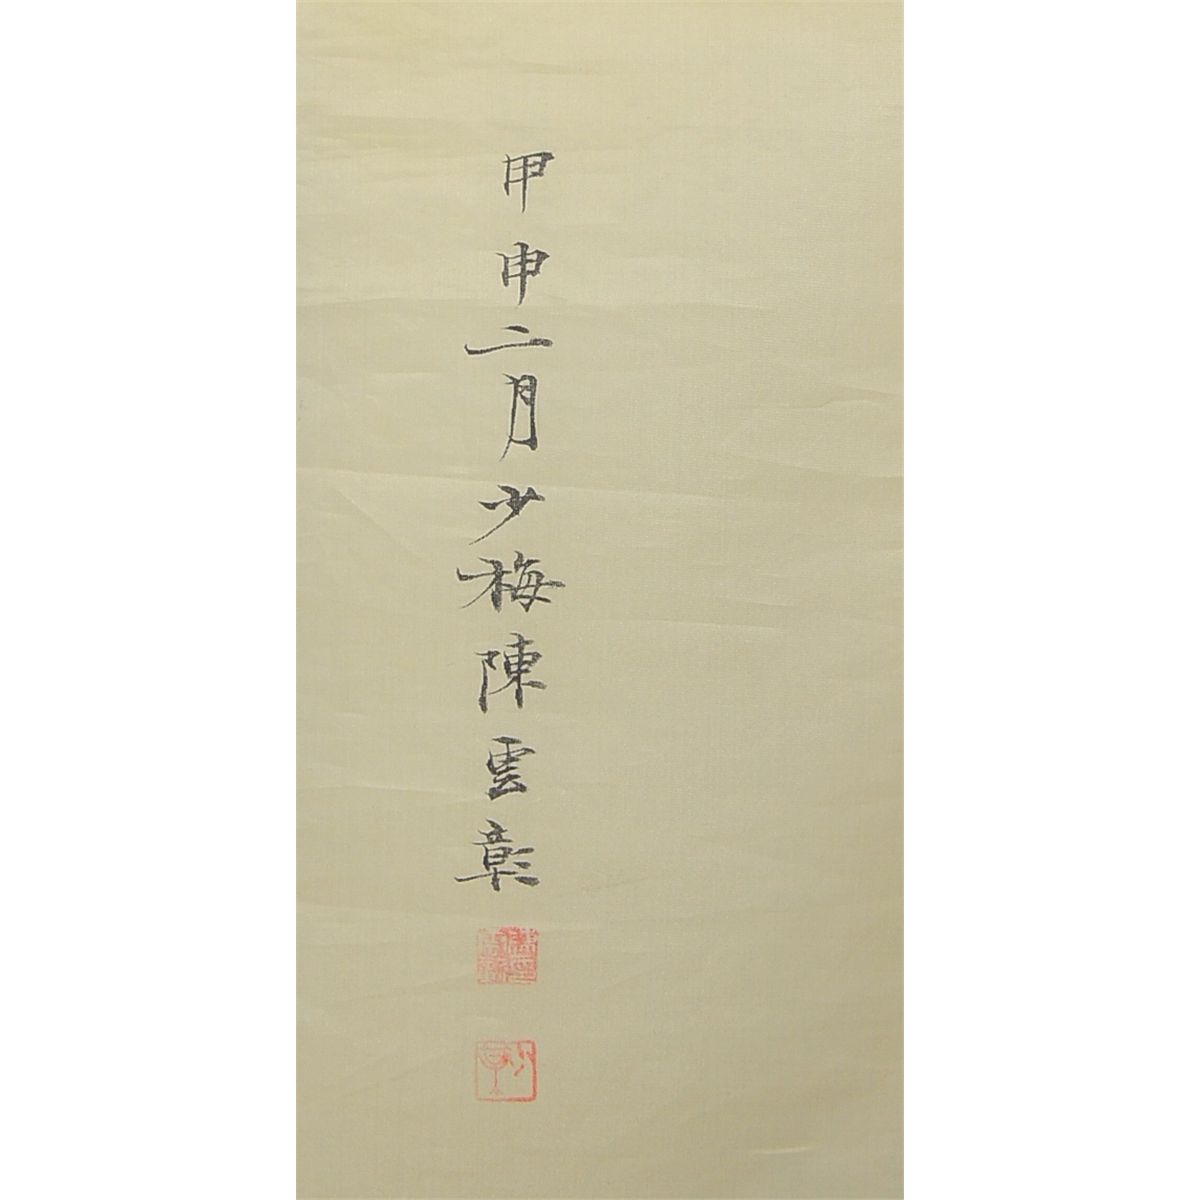 甲申二月少梅陳雲彰